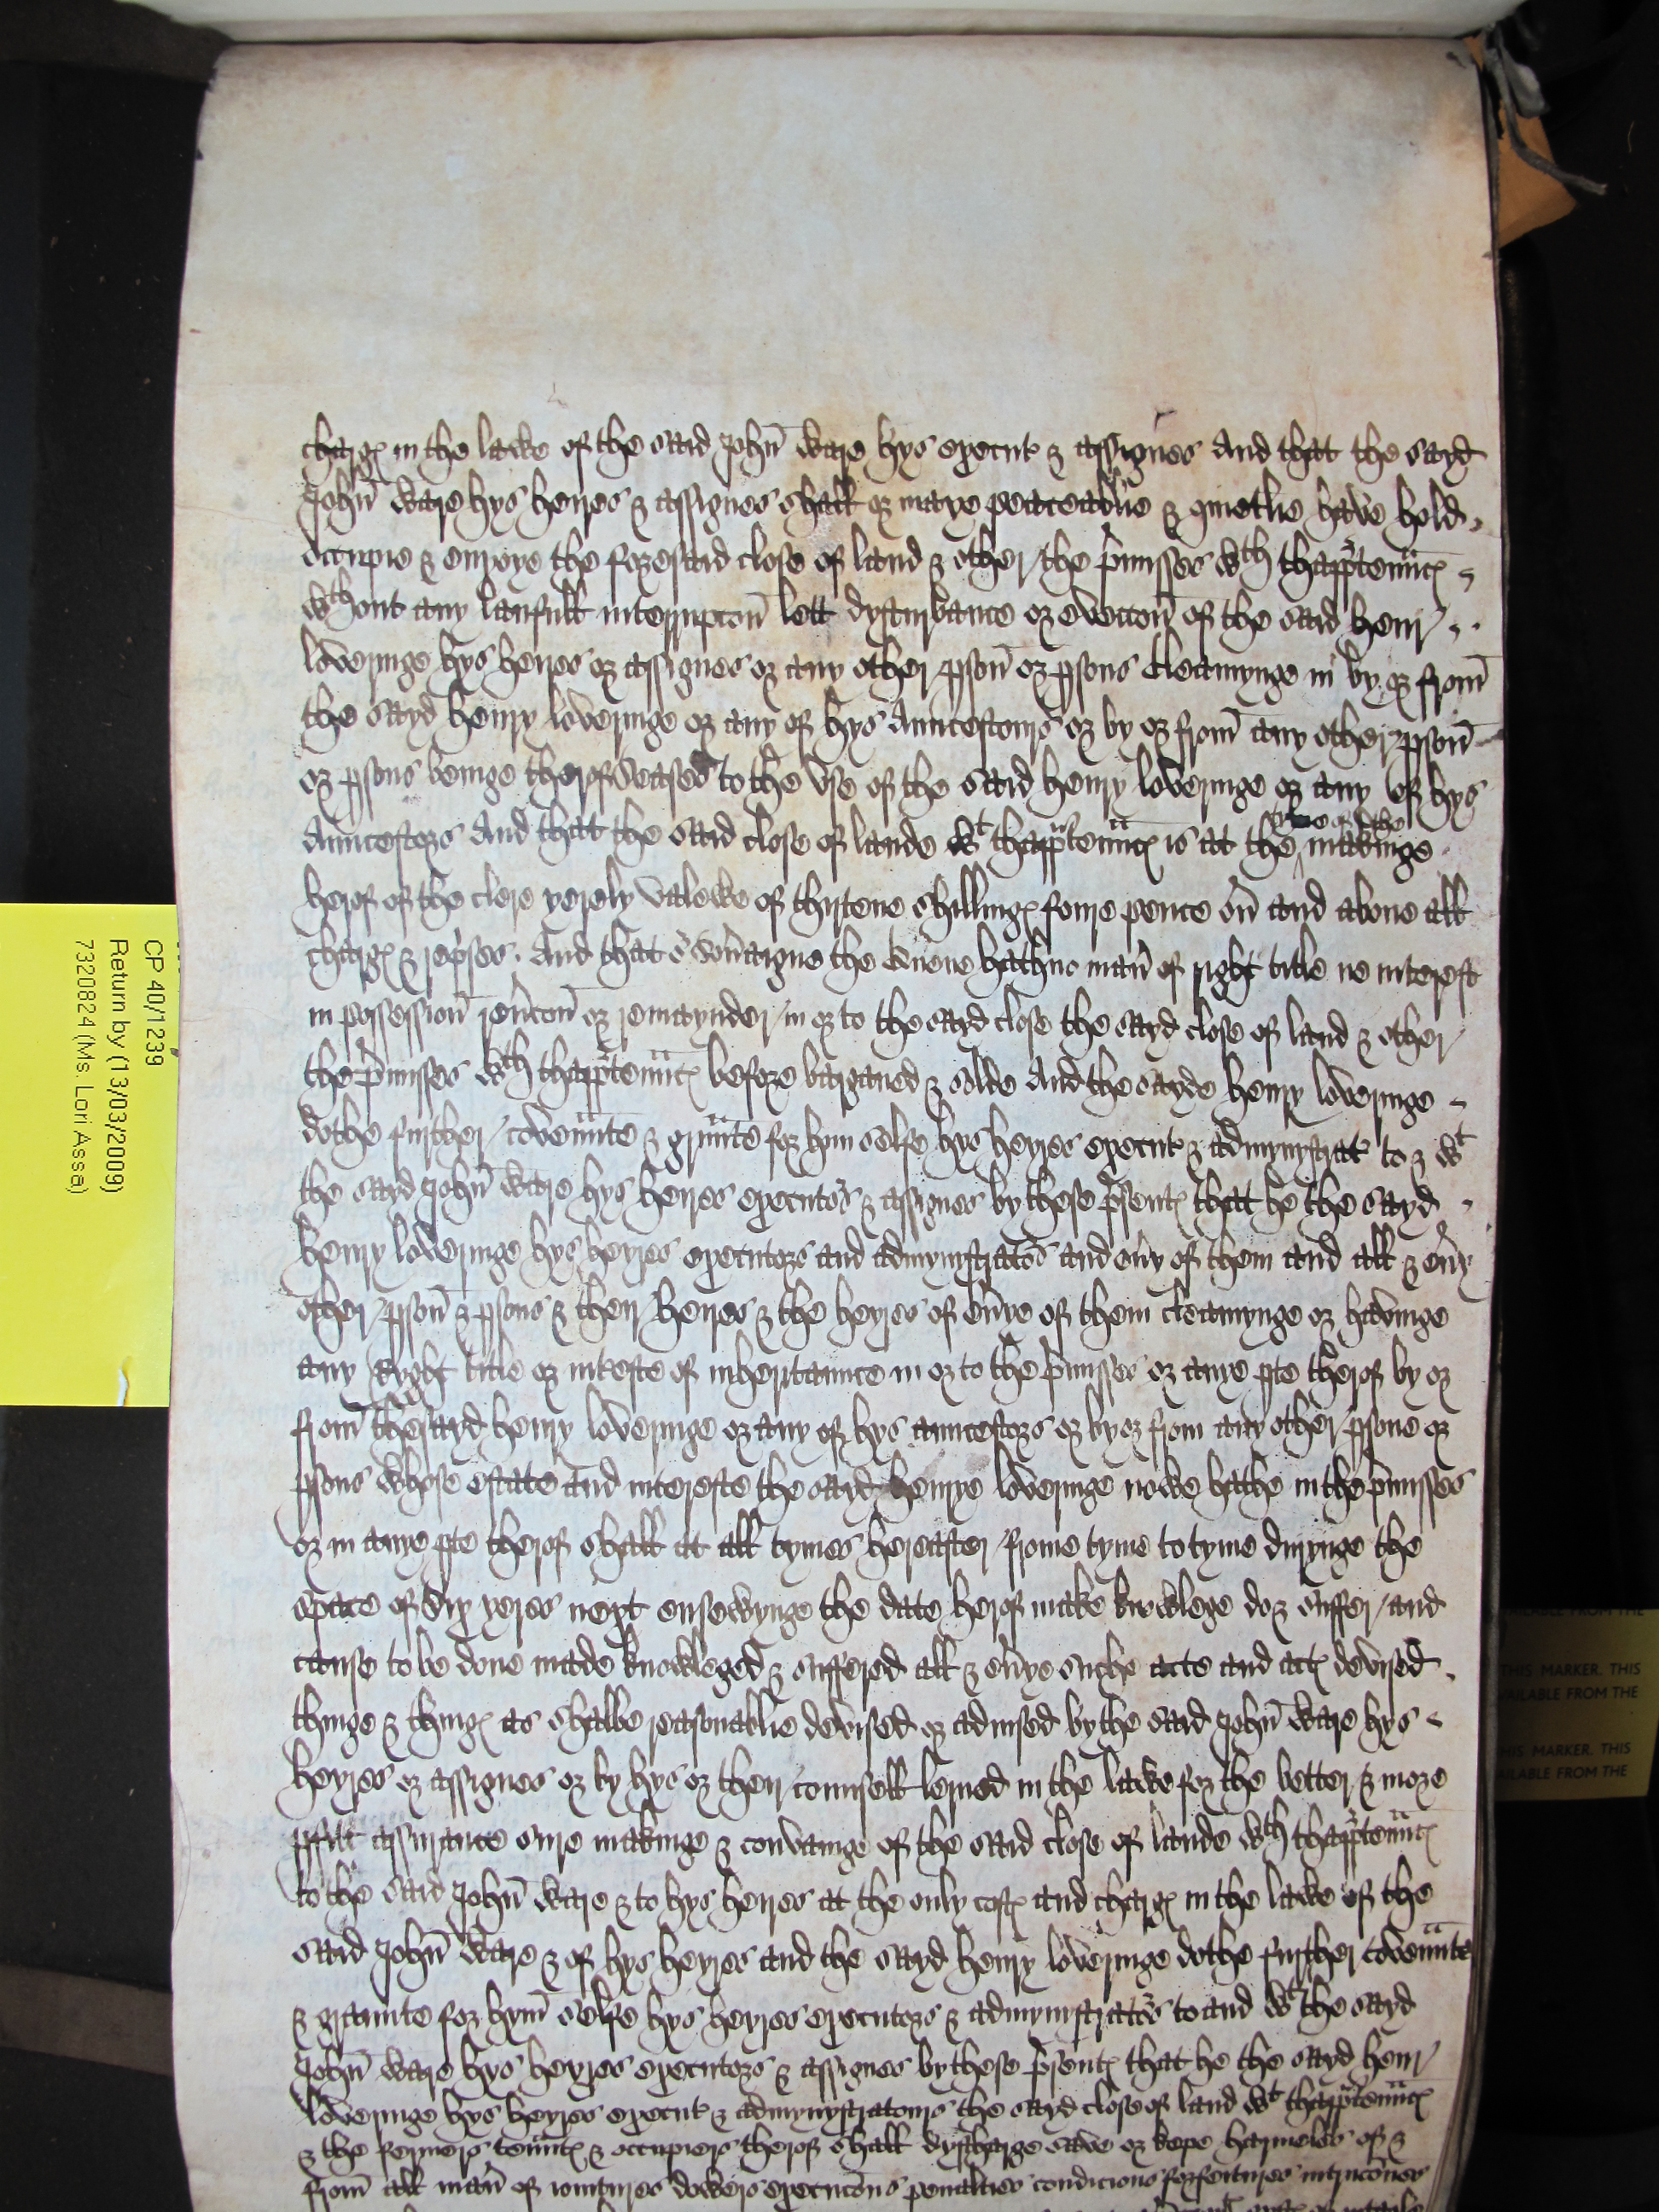 charg in the lawe of the said John Ware hys execut & assignes And that the sayd
John Ware hys heires & assignes shall or maye peaceablie & quietlie have hold
occupie & enioye the foresaid close of land & other the pmisses wth thapptennc
wthout any laufull interrupcon lett dysturbance or eviccon of the said Henr
Loveringe hys heires or assignes or any other pson or psons cleamynge in by or from
the sayd Henry Loveringe or any of hys Auncestours or by or from any other pson
or psons beinge therof seased to the use of the said Henry Loveringe or any of hys
Auncestors And that the said close of lande wt thapptennc is at the tyme of the makinge
herof of the clere yerely valewe of thirtene shilling foure pence ov and above all
charg & repses And that o sovaigne the Quene hath no man of right title ne interest
in possession revcon or remaynder in or to the sayd close the sayd close of land & other
the pmisses wth thapptennc before barganed & solde And the sayde Henry Loveringe
dothe further covennte & grunte for hym selfe hys heyres execut & admynystrat to & wt
the sayd John Ware hys heires executors & assignes by these psent that he the sayd
Henry Loveringe hys heyres executors and admynystrators and evy of them and all & evy
other pson & psons & their heires & the heyres of evye of them cleamynge or havinge
any Ryght title or intereste of inheritaunce in or to the pmisses or anye pte therof by or
from the sayd Henry Loveringe or any of hys auncestors or by or from any other psone or
psons whose estate and intereste the sayd Henrye Loveringe nowe hathe in the pmisses
or in anye pte therof shall at all tymes hereafter frome tyme to tyme durynge the
space of syx yeres next ensewynge the date herof make knowlege do & suffer and
cause to be done made knowleged & suffered all & evye suche acte and act devised
thinge & thing as shalbe reasonablie devised or advised by the said John Ware hys
heyres or assignes or by hys or their counsell lerned in the lawe for the better & more
pfitt assurance sure makinge & convainge of the said close of lande wth thapptennc
to the said John Ware & to hys heires at the only cost and charg in the lawe of the
said John Ware & of hys heyres and the sayd Henry Loveringe dothe further covennte
& graunte for hym selfe hys heyres executors & admynystrators to and wt the sayd
John Ware hys heyres executors & assignes by these psent that he the sayd Henr
Loveringe hys heyres execut & admynystratours the sayd close of land wt thapptennc
& the fermers tennt & occupiers therof shall dyscharge save or kepe harmeles of &
from all man of iointures dowers execucons penalties condicions forfeitures intrucones
CP 40/1239
Return by (13/03/2009)
7320824 (Ms. Lori Assa)
AVAILABLE FROM THE
THIS MARKER. THIS
AVAILABLE FROM THE
THIS MARKER. THIS
AVAILABLE FROM THE